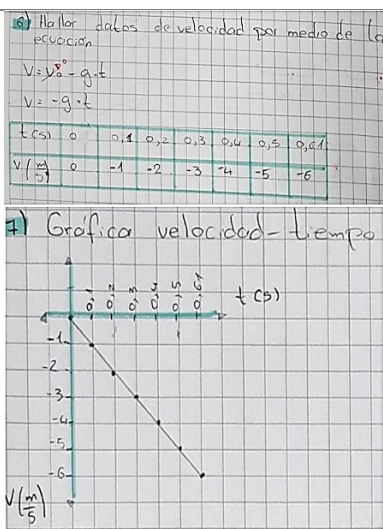 6) Hallar datos de velocidad por medio de la
ecuación
V = V₀ - g·t
V = -g·t
t(s) 0 0,1 0,2 0,3 0,4 0,5 0,61
V(m/s) 0 -1 -2 -3 -4 -5 -6
7) Gráfica velocidad-tiempo
0,1 0,2 0,3 0,4 0,5 0,61 t(s)
-1
-2
-3
-4
-5
-6
V(m/s)